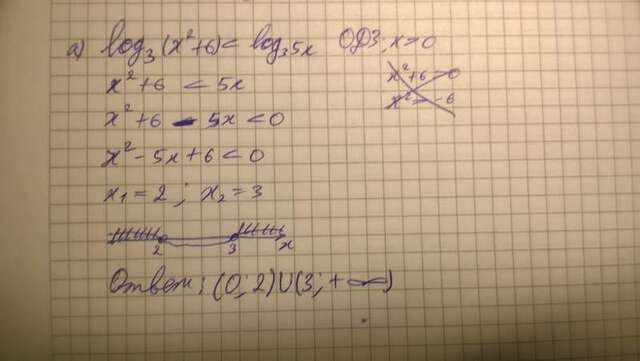 а) log₃(x²+6) < log₃5x ОДЗ: x>0
x²+6 < 5x
x²+6=0
x²=-6
x²+6 - 5x < 0
x²-5x+6 < 0
x₁=2; x₂=3
2 3 x
Ответ: (0;2)∪(3;+∞)